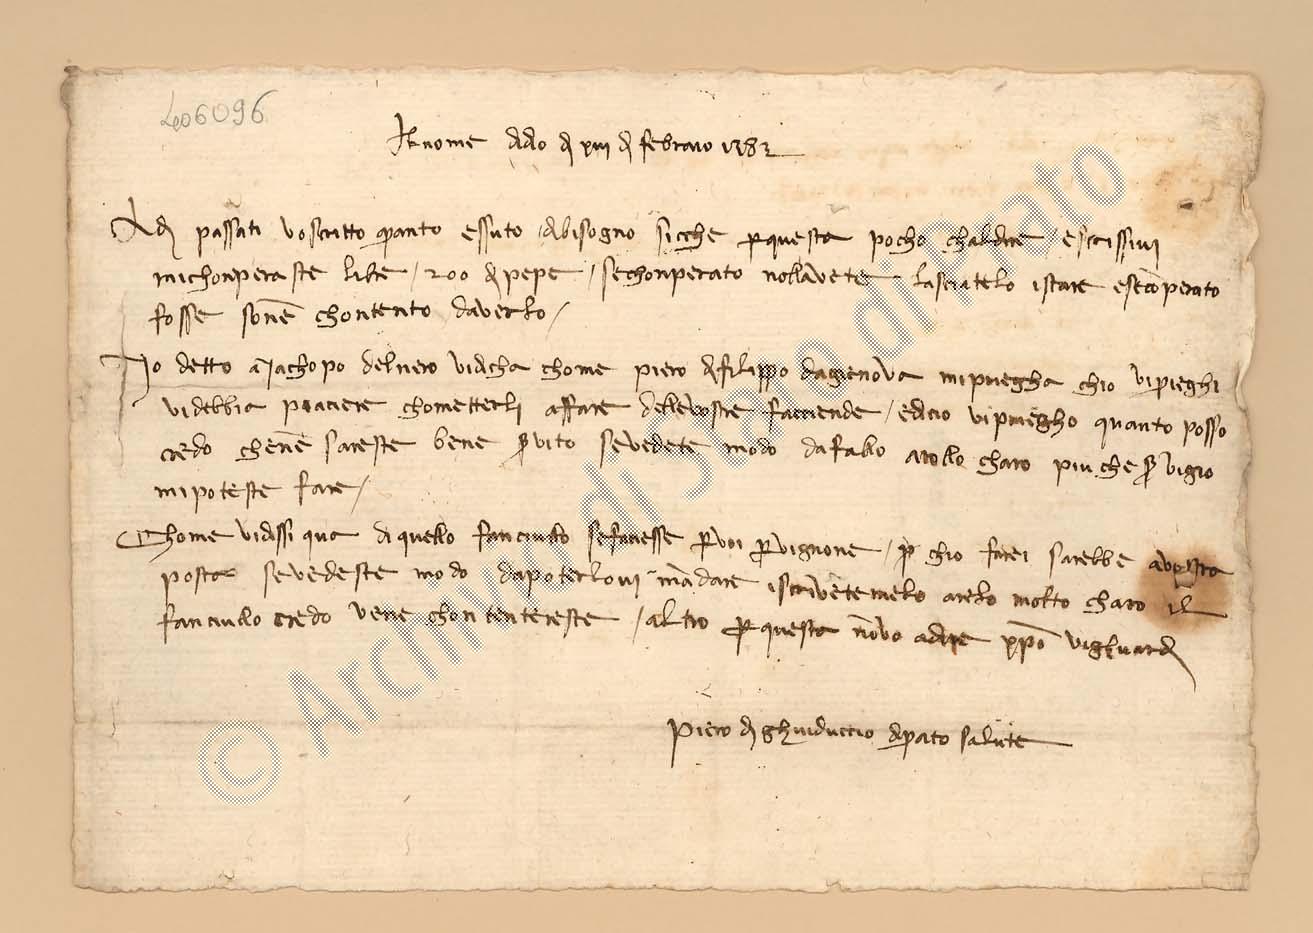 406096
Al nome di dio a dì xiii di febraio 1382
A dì passati vo scritto quanto essuto di bisogno sicche per questa pocho chal dire / escrissivi
mi chonperaste libre / 200 di pepe / se chonperato nollavete lasciatelo istare e se conperato
fosse sonne chontento daverlo /
Io detto a Jachopo del nero vi dicha chome piero di filippo da gienova mi priegha chio vi prieghi
vi debbia piaciere chometterli affare delle vostre facciende / e dicio vi priegho quanto posso
credo chenne sareste bene servito se vedete modo da fallo arollo charo piu che servigio
mi poteste fare /
Chome vi dissi qua di quello fanciullo se facesse per voi per vignone / per chio farei sarebbe a vostra
posta se vedeste modo da poterlovi mandare iscrivetemelo arelo molto charo il
fanciullo credo vene chontentereste / altro per questa non vo a dire xpo vi ghuardi
Piero di ghuiduccio di prato salute
© Archivio di Stato di Prato